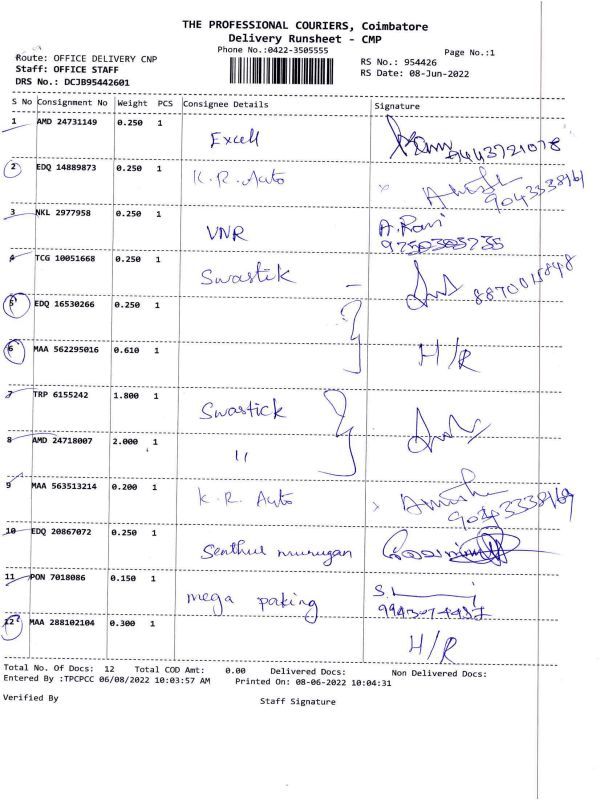 THE PROFESSIONAL COURIERS, Coimbatore
Delivery Runsheet - CMP
Phone No.:0422-3505555
Page No.:1
Route: OFFICE DELIVERY CNP
RS No.: 954426
Staff: OFFICE STAFF
RS Date: 08-Jun-2022
DRS No.: DCJB95442601
S No Consignment No Weight PCS Consignee Details Signature
1 AMD 24731149 0.250 1
Excell
9443721078
2 EDQ 14889873 0.250 1
K.R. Auto
3 NKL 2977958 0.250 1
VNR
A. Ravi
9750305735
4 TCG 10051668 0.250 1
Swastik
8870015848
5 EDQ 16530266 0.250 1
6 MAA 562295016 0.610 1
H/R
7 TRP 6155242 1.800 1
Swastick
8 AMD 24718007 2.000 1
"
9 MAA 563513214 0.200 1
K.R. Auto
10 EDQ 20867072 0.250 1
Senthul murugan
11 PON 7018086 0.150 1
mega paking
12 MAA 288102104 0.300 1
H/R
Total No. Of Docs: 12 Total COD Amt: 0.00 Delivered Docs: Non Delivered Docs:
Entered By :TPCPCC 06/08/2022 10:03:57 AM Printed On: 08-06-2022 10:04:31
Verified By
Staff Signature